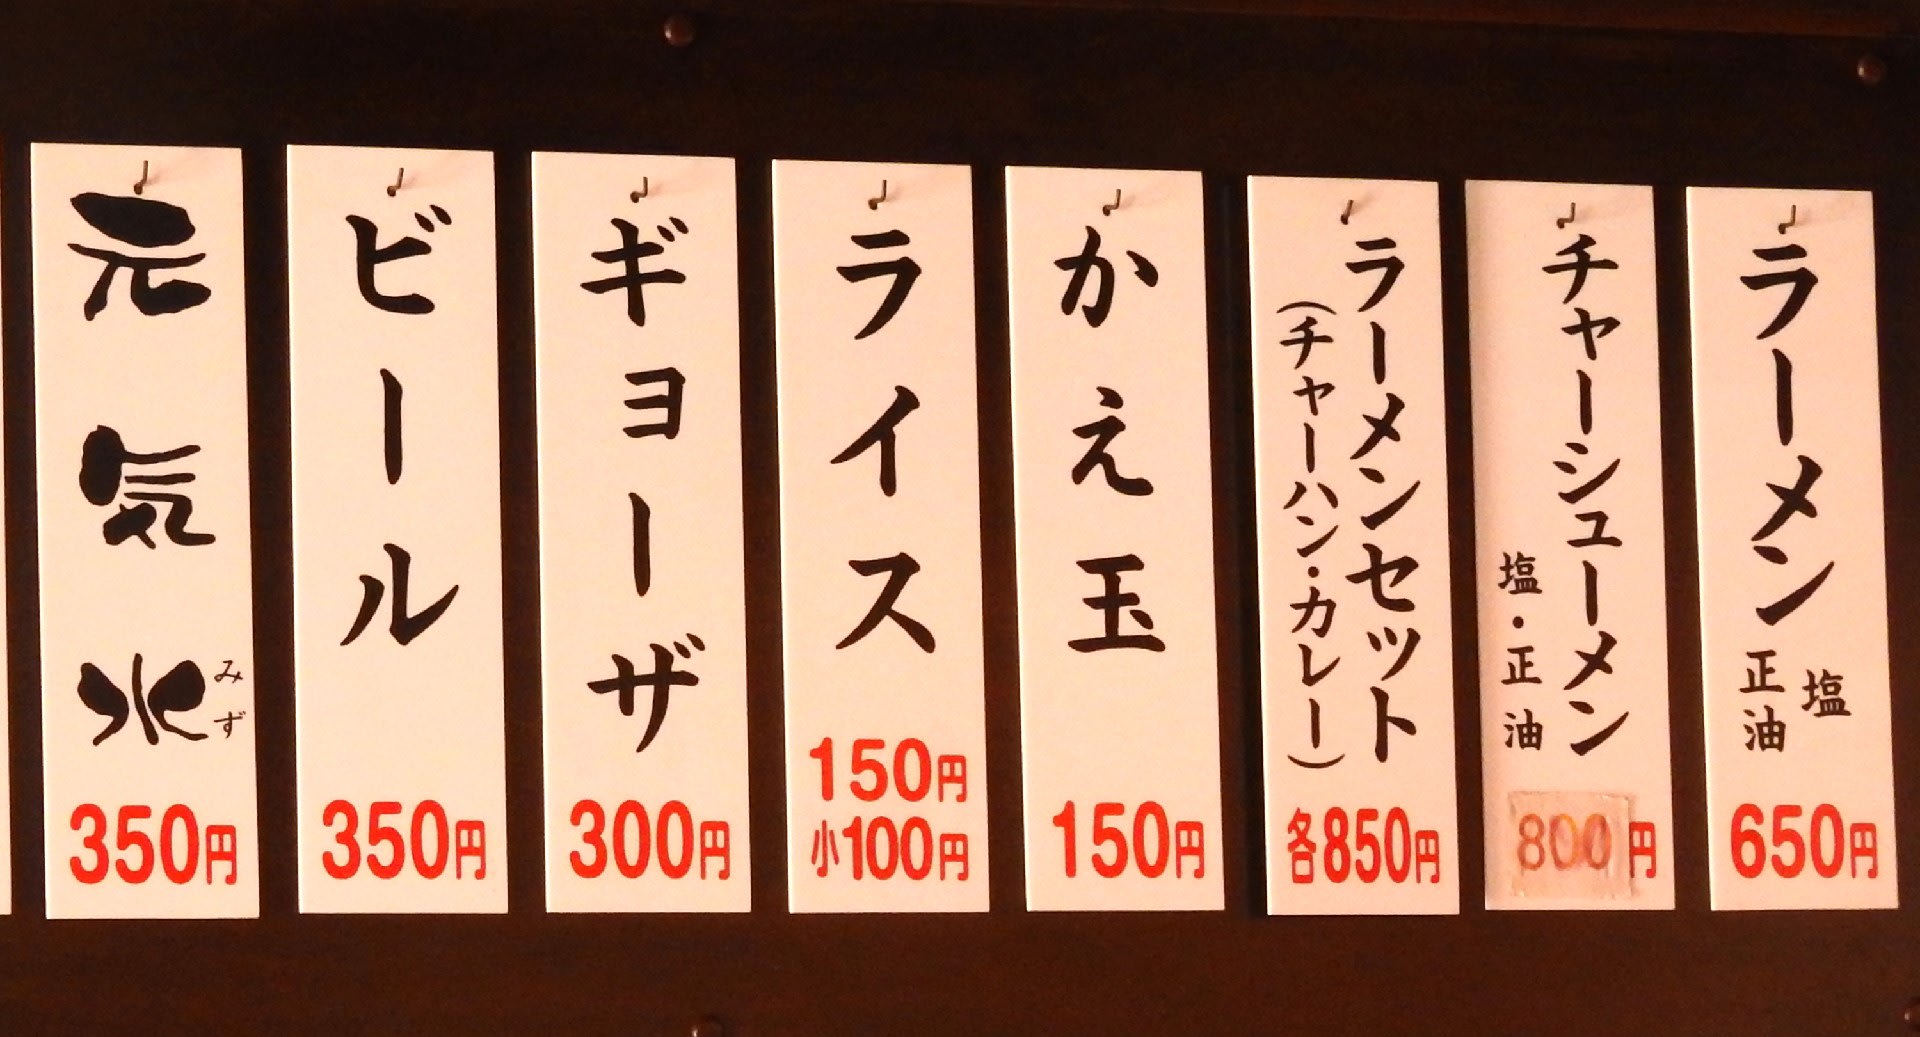 ラーメン
塩
正油
650円
チャーシューメン
塩・正油
800円
ラーメンセット
(チャーハン・カレー)
各850円
かえ玉
150円
ライス
150円
小100円
ギョーザ
300円
ビール
350円
元気水
みず
350円